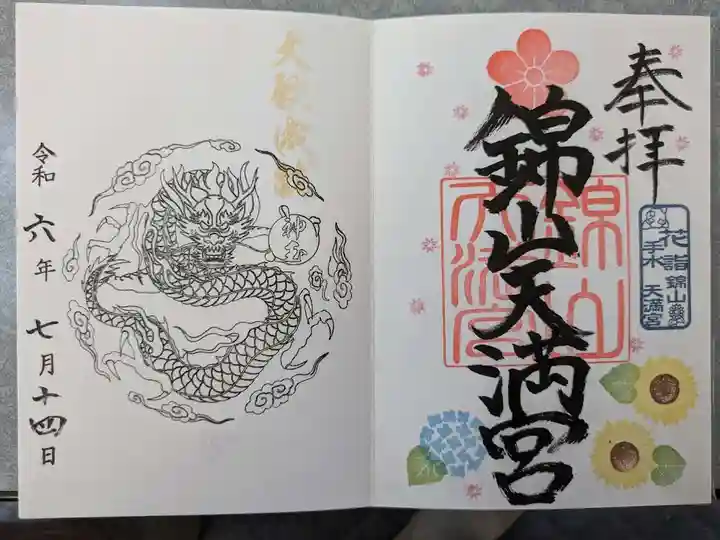 奉拝
錦山天満宮
錦山
天満宮
花手水詣
錦山天満宮
令和六年七月十四日